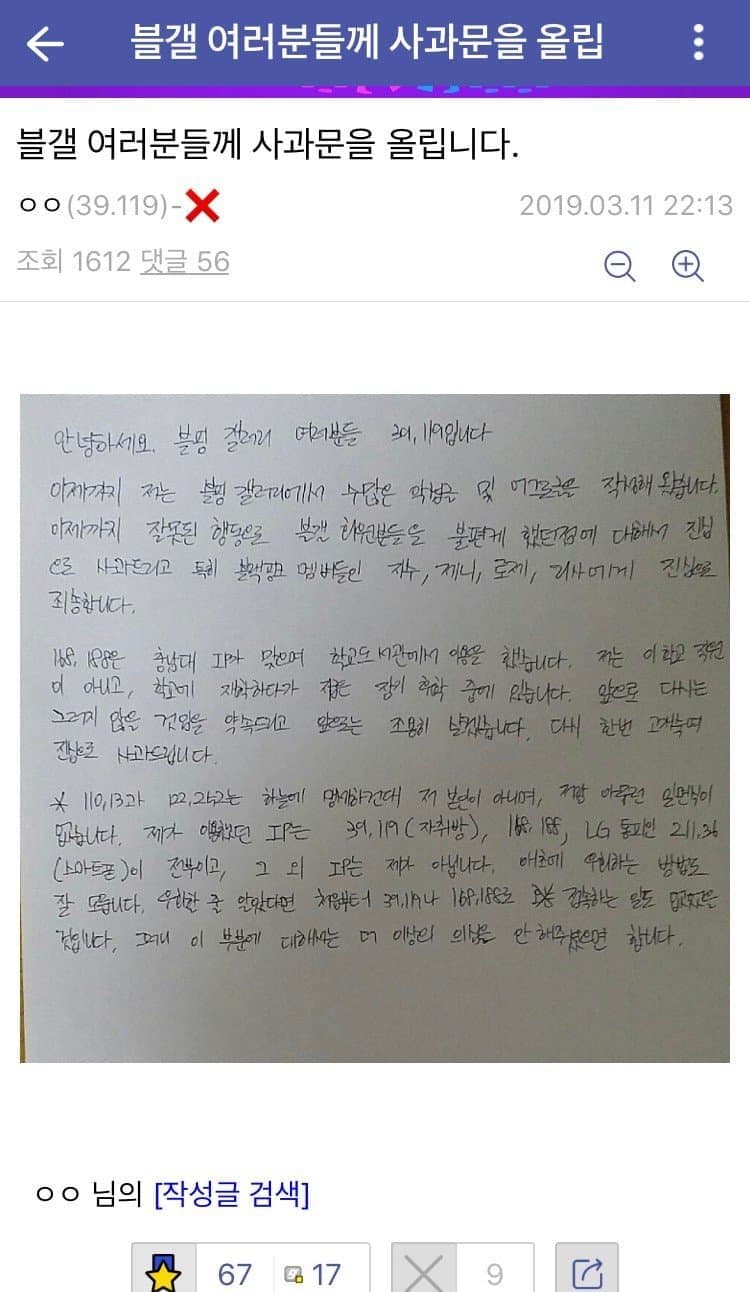 블갤 여러분들께 사과문을 올립
블갤 여러분들께 사과문을 올립니다.
ㅇㅇ(39.119)-❌
2019.03.11 22:13
조회 1612 댓글 56
안녕하세요. 블핑 갤러리 여러분들 39,119입니다
이제까지 저는 블핑 갤러리에서 수많은 악성글 및 어그로글을 작성해 왔습니다.
이제까지 잘못된 행동으로 블갤 회원분들을 불편케 했던점에 대해서 진심
으로 사과드리고 특히 블랙핑크 멤버들인 지수, 제니, 로제, 리사에게 진심으로
죄송합니다.
168, 188은 충남대 IP가 맞으며 학교도서관에서 이용을 했습니다. 저는 이 학교 직원
이 아니고, 학교에 재학하다가 장기 휴학 중에 있습니다. 앞으로 다시는
그러지 않을 것임을 약속드리고 앞으로는 조용히 살겠습니다. 다시 한번 고개숙여
진심으로 사과드립니다.
* 110,13과 122,252는 하늘에 맹세하건대 저 본인이 아니며, 저랑 아무런 일면식이
없습니다. 제가 이용했던 IP는 39,119(자취방), 168,188, LG 통피인 211.36
(스마트폰)이 전부이고, 그 외 IP는 제가 아닙니다. 애초에 우회하는 방법도
잘 모릅니다. 우회할 줄 알았다면 처음부터 39,119나 168,188로 접속하는 일도 없었을
것입니다. 그러니 이 부분에 대해서는 더 이상의 의심을 안 해주셨으면 합니다.
ㅇㅇ 님의 [작성글 검색]
67 17 9